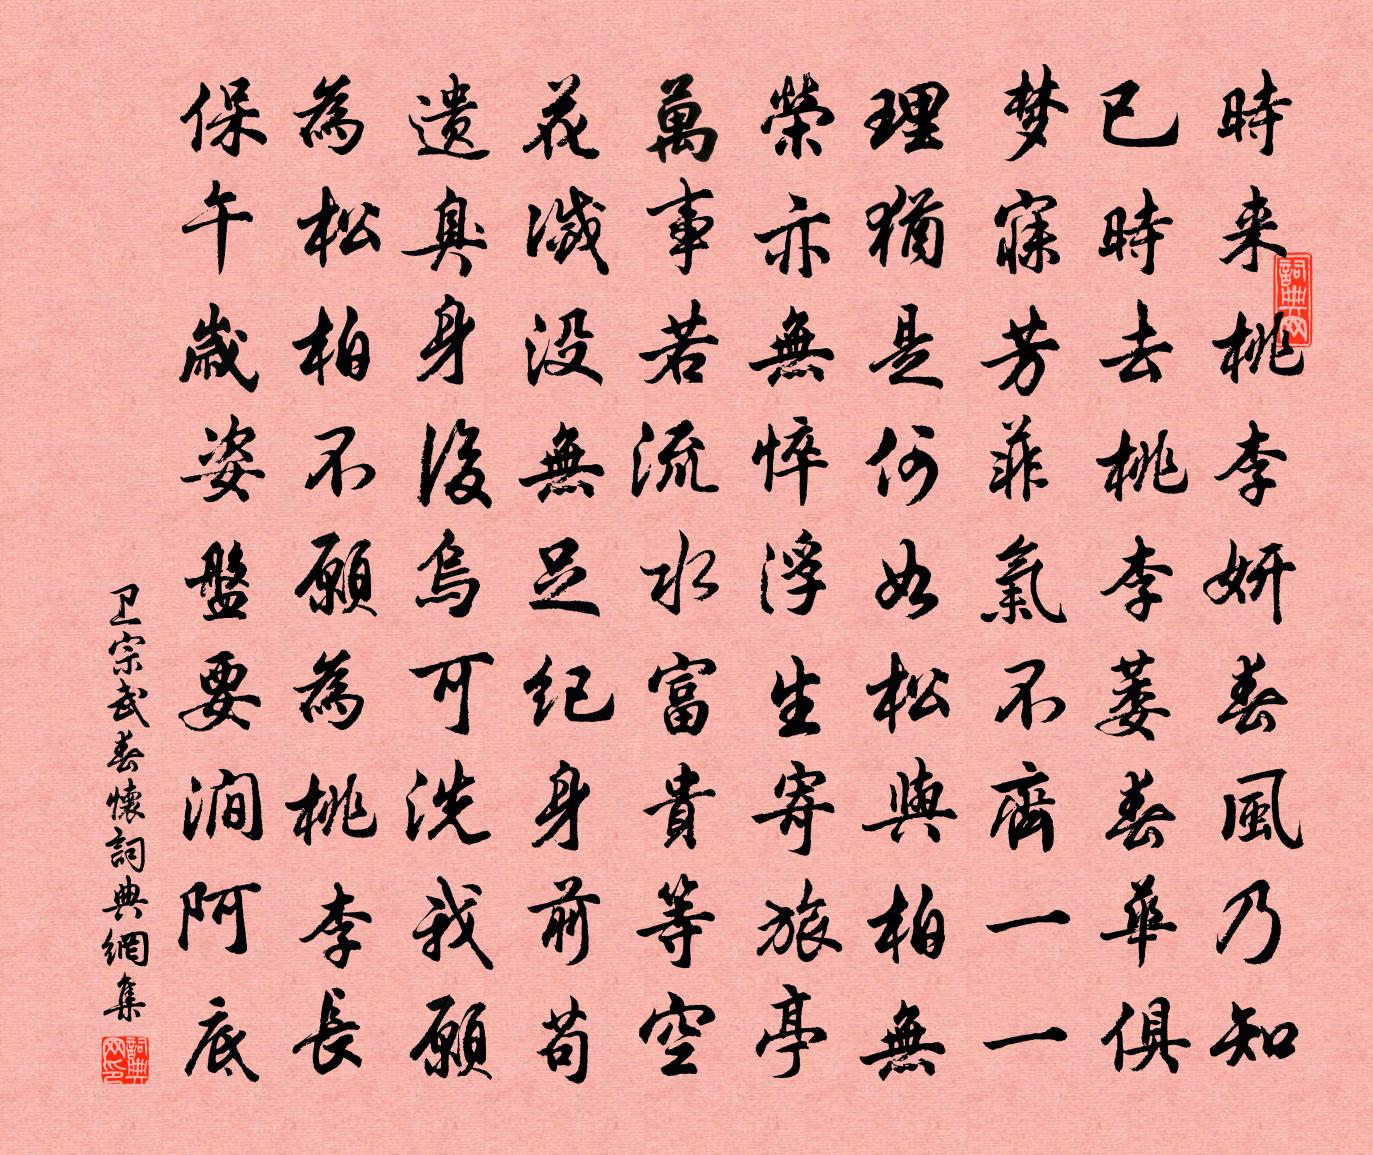 詞典网
時来桃李妍春風乃知
已時去桃李萎春華俱
梦寐芳菲氣不齊一一
理猶是何如松與柏無
榮亦無悴浮生寄旅亭
萬事若流水富貴等空
花滅没無足纪身前苟
遗臭身後烏可洗我願
為松柏不願為桃李長
保午歲姿盤要澗阿底
卫宗武春懷詞典網集
詞典网印